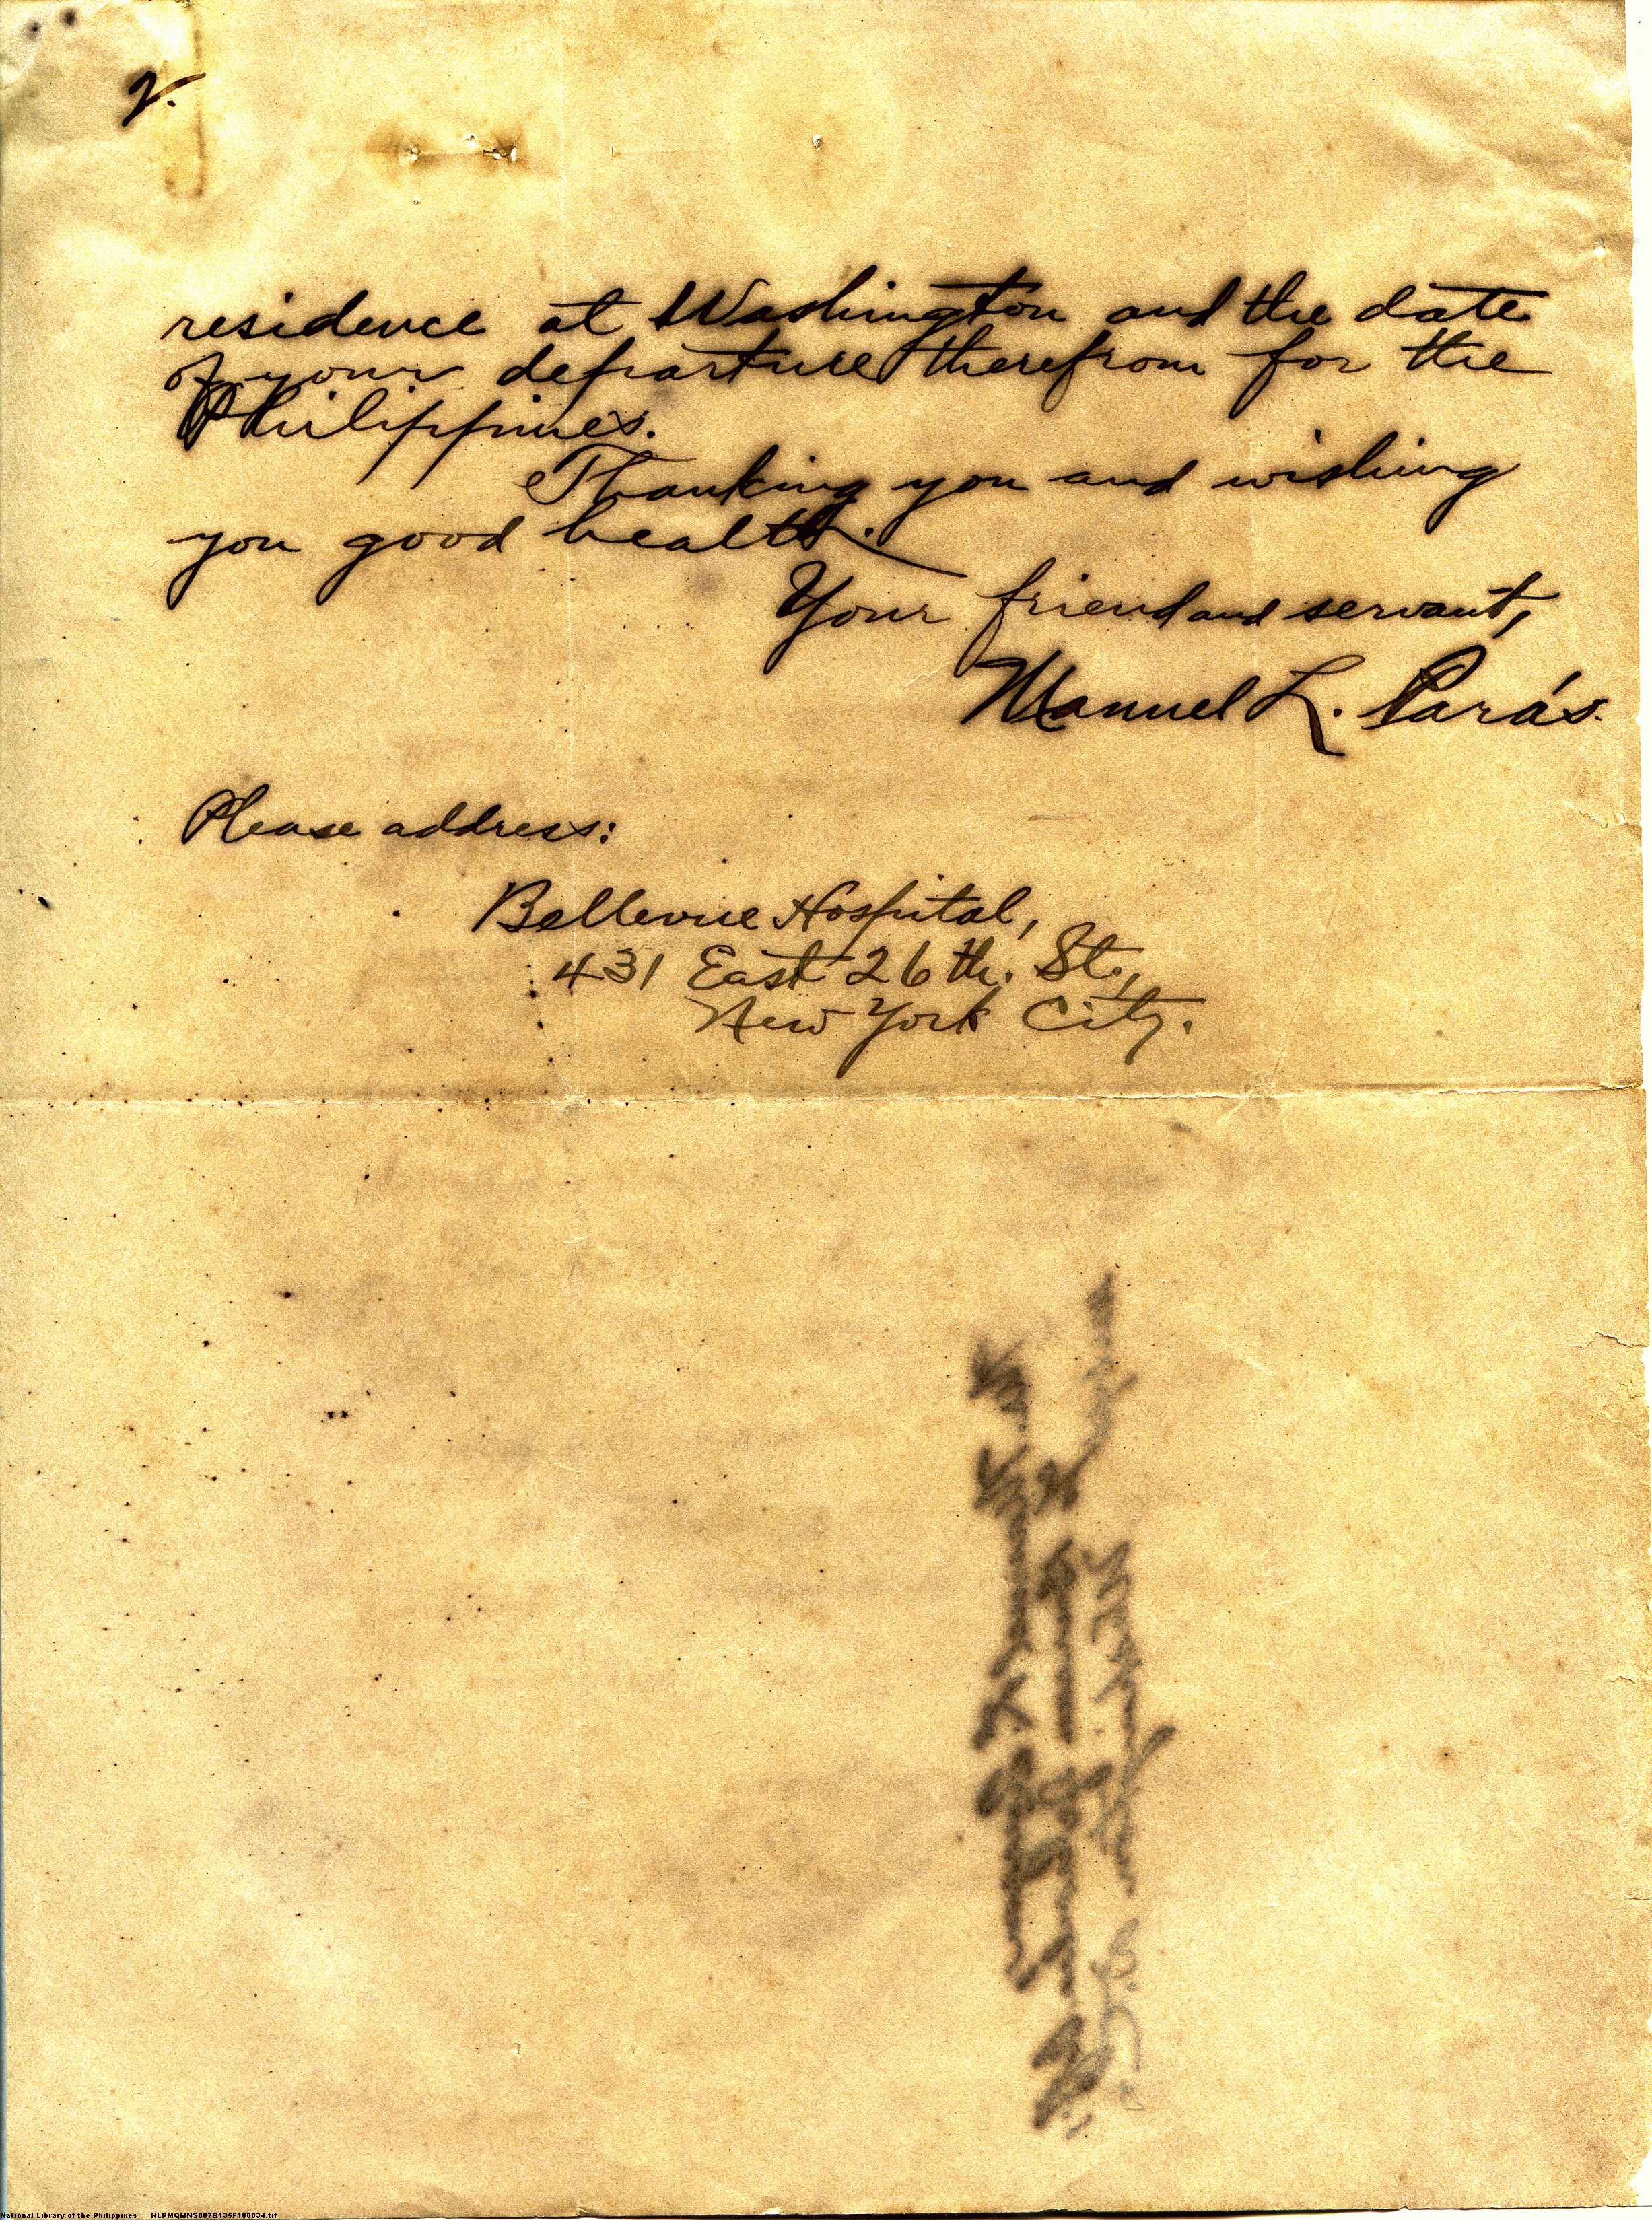 2.
residence at Washington and the date
of your departure therefrom for the
Philippines.
Thanking you and wishing
you good health.
Your friend and servant,
Manuel L. Parás.
Please address:
Bellevue Hospital,
431 East 26th. St.,
New York City.
National Library of the Philippines NLPMQMNS007B135F100034.tif